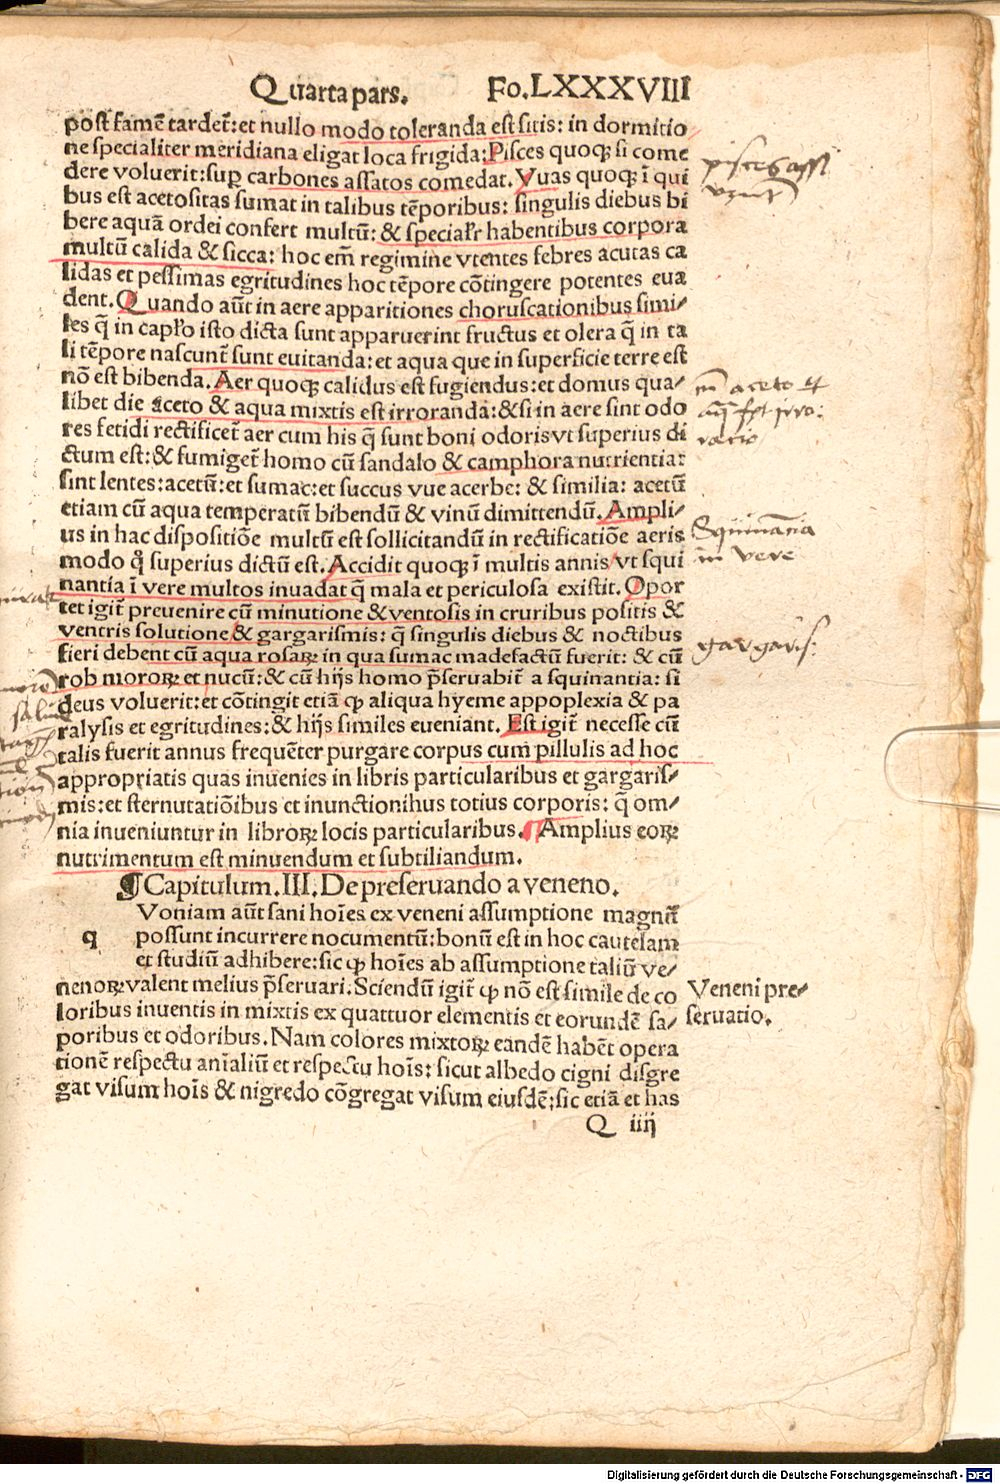 Quarta pars. Fo. LXXXVIII
post famē tardet̄: et nullo modo toleranda est sitis: in dormitio
ne specialiter meridiana eligat loca frigida: Pisces quoqꝫ si come
dere voluerit: suꝑ carbones assatos comedat. Vuas quoqꝫ ī qui
bus est acetositas sumat in talibus tēporibus: singulis diebus bi
bere aquā ordei confert multū: & speciałr habentibus corpora
multū calida & sicca: hoc em̄ regimine vtentes febres acutas ca
lidas et pessimas egritudines hoc tēpore cōtingere potentes eua
dent. Quando aūt in aere apparitiones choruscationibus simi⸗
les q̄ in capło isto dicta sunt apparuerint fructus et olera q̄ in ta
li tēpore nascunt̄ sunt euitanda: et aqua que in superficie terre est
nō est bibenda. Aer quoqꝫ calidus est fugiendus: et domus qua⸗
libet die aceto & aqua mixtis est irroranda: & si in aere sint odo
res fetidi rectificet̄ aer cum his q̄ sunt boni odoris vt superius di
ctum est: & fumiget̄ homo cū sandalo & camphora nutrientia:
sint lentes: acetū: et sumac: et succus vue acerbe: & similia: acetū
etiam cū aqua temperatū bibendū & vinū dimittendū. Ampli⸗
us in hac dispositiōe multū est sollicitandū in rectificatiōe aeris
modo q̊ superius dictū est. Accidit quoqꝫ ī multis annis vt squi
nantia ī vere multos inuadat q̄ mala et periculosa existit. Opor
tet igit̄ preuenire cū minutione & ventosis in cruribus positis &
ventris solutione & gargarismis: q̄ singulis diebus & noctibus
fieri debent cū aqua rosaꝝ in qua sumac madefactū fuerit: & cū
rob moroꝝ et nucū: & cū hijs homo p̄seruabit̄ a squinantia: si
deus voluerit: et cōtingit etiā ꝙ aliqua hyeme appoplexia & pa
ralysis et egritudines: & hijs similes eueniant. Est igit̄ necesse cū
talis fuerit annus frequēter purgare corpus cum pillulis ad hoc
appropriatis quas inuenies in libris particularibus et gargaris⸗
mis: et sternutatiōibus et inunctionibus totius corporis: q̄ om⸗
nia inueniuntur in libroꝝ locis particularibus. ¶ Amplius eoꝝ
nutrimentum est minuendum et subtiliandum.
¶ Capitulum. III. De preseruando a veneno.
q Voniam aūt sani hoīes ex veneni assumptione magnū
possunt incurrere nocumentū: bonū est in hoc cautelam
et studiū adhibere: sic ꝙ hoīes ab assumptione taliū ve⸗
nenoꝝ valent melius p̄seruari. Sciendū igit̄ ꝙ nō est simile de co
loribus inuentis in mixtis ex quattuor elementis et eorundē sa⸗
poribus et odoribus. Nam colores mixtoꝝ eandē habēt opera
tionē respectu anīaliū et respectu hoīs: sicut albedo cigni disgre
gat visum hoīs & nigredo cōgregat visum eiusdē: sic etiā et has
Q iiij
pisces assi
aceto et
Squinantia
in vere
gargaris:
Veneni pre⸗
seruatio.
Digitalisierung gefördert durch die Deutsche Forschungsgemeinschaft - DFG